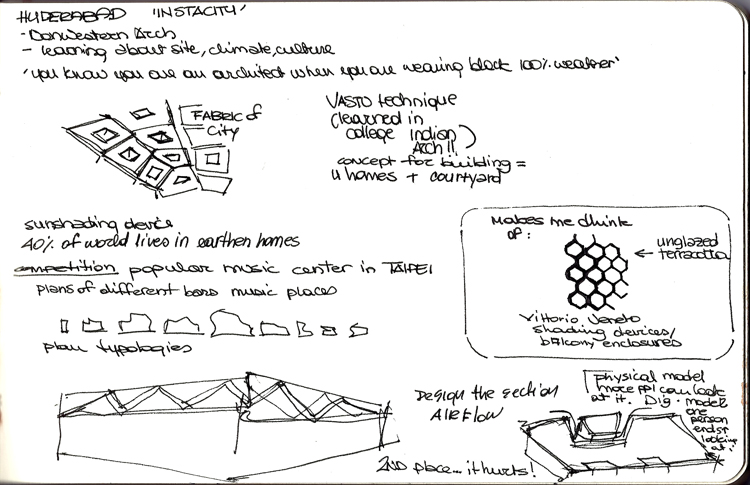 HYDERABAD 'INSTACITY'
- Nonwestern Arch
- learning about site, climate, culture
'you know you are an architect when you are wearing black 100% weather'
FABRIC of
City
VASTO technique
(learned in
college Indian
Arch!!)
concept for building =
4 homes + courtyard
sunshading device
40% of world lives in earthen homes
competition popular music center in TAIPEI
plans of different bass music places
plan typologies
makes me think
of:
← unglazed
terracotta
Vittorio Veneto
shading devices/
balcony enclosures
Design the section
AIRFLOW
2ND place... it hurts!
physical model
more ppl can look
at it. Dig. model
one
person
ends
looking
at it